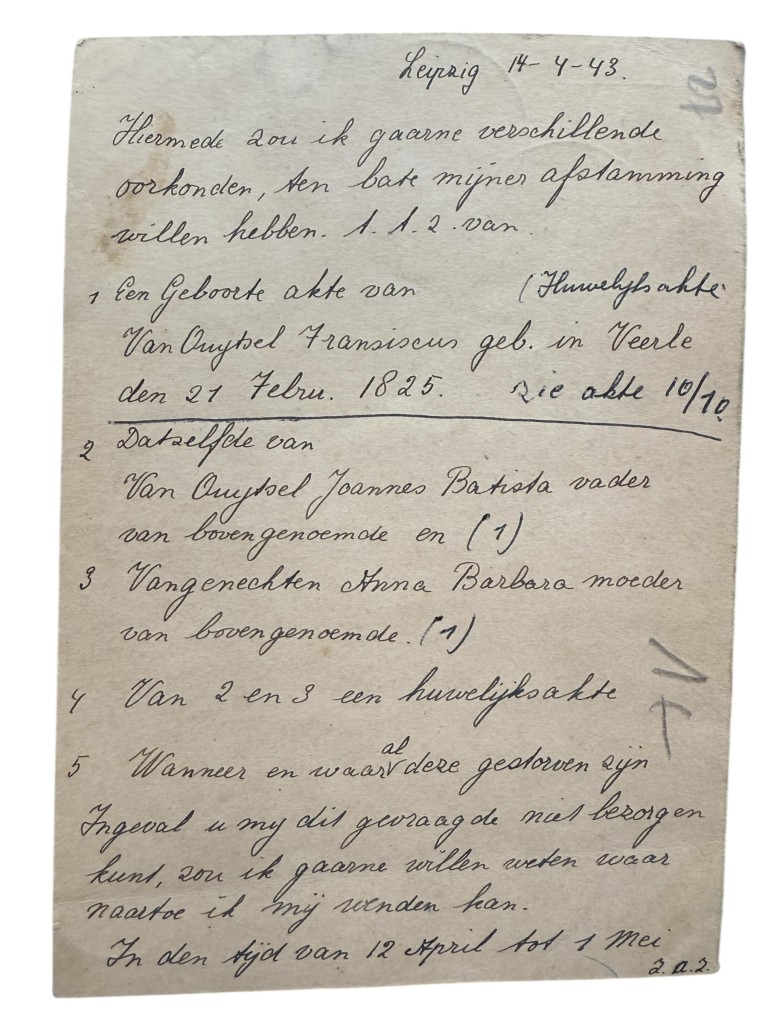 Leipzig 14-4-43.
Hiermede zou ik gaarne verschillende
oorkonden, ten bate mijner afstamming
willen hebben. 1. 1. 2. van.
1 Een Geboorte akte van (Huwelijksakte
Van Ouytsel Fransiscus geb. in Veerle
den 21 Febru. 1825. zie akte 10/10.
2 Datselfde van
Van Ouytsel Joannes Batista vader
van bovengenoemde en (1)
3 Vangenechten Anna Barbara moeder
van bovengenoemde. (1)
4 Van 2 en 3 een huwelijksakte
5 Wanneer en waar al deze gestorven zijn
Ingeval u mij dit gevraagde niet bezorgen
kunt, zou ik gaarne willen weten waar
naartoe ik mij wenden kan.
In den tijd van 12 April tot 1 Mei
z.a.z.